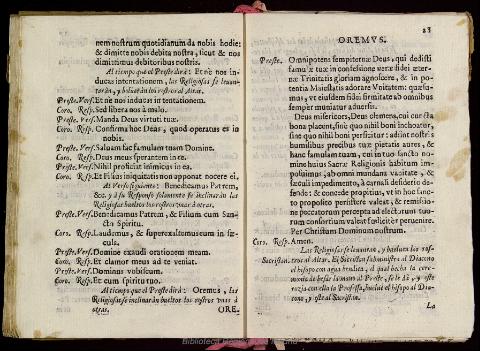 nem nostrum quotidianum da nobis hodie:
& dimitte nobis debita nostra, sicut & nos
dimittimus debitoribus nostris.
Al tiempo que el Preste dirà: Et nè nos in-
ducas in tentationem, las Religiosas se levan-
taràn, y bolveràn los rostros al Altar.
Preste. Vers. Et nè nos inducas in tentationem.
Coro. Resp. Sed libera nos à malo.
Preste. Vers. Manda Deus virtuti tuæ.
Coro. Resp. Confirma hoc Deus, quod operatus es in
nobis.
Preste. Vers. Salvam fac famulam tuam Domine.
Coro. Resp. Deus meus sperantem in te.
Preste. Vers. Nihil proficiat inimicus in ea.
Coro. Resp. Et Filius iniquitatis non apponat nocere ei.
Al Verso siguiente: Benedicamus Patrem,
&c. y à su Responso solamente se inclinaràn las
Religiosas bueltos los rostros unas à otras.
Preste. Vers. Benedicamus Patrem, & Filium cum San-
cto Spiritu.
Coro. Resp. Laudemus, & superexaltemus eum in sæ-
cula.
Preste. Vers. Domine exaudi orationem meam.
Coro. Resp. Et clamor meus ad te veniat.
Preste. Vers. Dominus vobiscum.
Coro. Resp. Et cum spiritu tuo.
Al tiempo que el Preste dirà: Oremus, las
Religiosas se inclinaràn bueltos los rostros unas à
otras. ORE-
28
OREMVS.
Preste. Omnipotens sempiterne Deus, qui dedisti
famulæ tuæ in confessione veræ fidei æter-
næ Trinitatis gloriam agnoscere, & in po-
tentia Maiestatis adorare Vnitatem: quæsu-
mus, vt eiusdem fidei firmitate ab omnibus
semper muniatur adversis.
Deus misericors, Deus clemens, cui cuncta
bona placent, sine quo nihil boni inchoatur,
sine quo nihil boni perficitur: adsint nostris
humilibus precibus tuæ pietatis aures, &
hanc famulam tuam, cui in tuo sancto no-
mine huius Sacræ Religionis habitum im-
posuimus, ab omni mundana vacuitate, &
sæculi impedimento, à carnali desiderio de-
fende: & concede propitius, vt in hoc sanc-
to proposito persistere valeat, & remissio-
ne peccatorum percepta ad electorum tuo-
rum consortium valeat feliciter pervenire.
Per Christum Dominum nostrum.
Coro. Resp. Amen.
Las Religiosas se levantan, y buelven los ros-
Sacristan. tros al Altar. El Sacristan subministra al Diacono
el hisopo con agua bendita, el qual hecha la cere-
monia de besar la mano al Preste, se le dà, y este
rozia con ella la Professa, buelve el hisopo al Dia-
cono, y este al Sacristan.
La